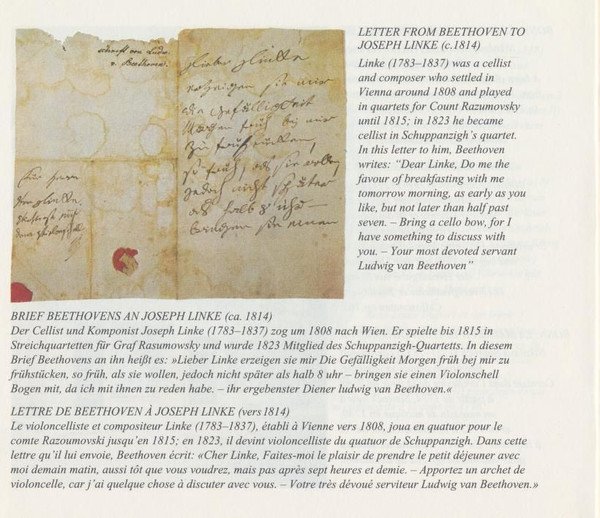 schrift von Ludw.
v. Beethoven.
Lieber Linke
erzeigen sie mir
die Gefälligkeit
Morgen früh bej mir
zu frühstücken,
so früh, als sie wollen,
jedoch nicht später
als halb 8 uhr –
bringen sie einen
Für Herrn
LETTER FROM BEETHOVEN TO
JOSEPH LINKE (c.1814)
Linke (1783–1837) was a cellist
and composer who settled in
Vienna around 1808 and played
in quartets for Count Razumovsky
until 1815; in 1823 he became
cellist in Schuppanzigh's quartet.
In this letter to him, Beethoven
writes: “Dear Linke, Do me the
favour of breakfasting with me
tomorrow morning, as early as you
like, but not later than half past
seven. – Bring a cello bow, for I
have something to discuss with
you. – Your most devoted servant
Ludwig van Beethoven”
BRIEF BEETHOVENS AN JOSEPH LINKE (ca. 1814)
Der Cellist und Komponist Joseph Linke (1783–1837) zog um 1808 nach Wien. Er spielte bis 1815 in
Streichquartetten für Graf Rasumowsky und wurde 1823 Mitglied des Schuppanzigh-Quartetts. In diesem
Brief Beethovens an ihn heißt es: »Lieber Linke erzeigen sie mir Die Gefälligkeit Morgen früh bej mir zu
frühstücken, so früh, als sie wollen, jedoch nicht später als halb 8 uhr – bringen sie einen Violonschell
Bogen mit, da ich mit ihnen zu reden habe. – ihr ergebenster Diener ludwig van Beethoven.«
LETTRE DE BEETHOVEN À JOSEPH LINKE (vers 1814)
Le violoncelliste et compositeur Linke (1783–1837), établi à Vienne vers 1808, joua en quatuor pour le
comte Razoumovski jusqu'en 1815; en 1823, il devint violoncelliste du quatuor de Schuppanzigh. Dans cette
lettre qu'il lui envoie, Beethoven écrit: «Cher Linke, Faites-moi le plaisir de prendre le petit déjeuner avec
moi demain matin, aussi tôt que vous voudrez, mais pas après sept heures et demie. – Apportez un archet de
violoncelle, car j'ai quelque chose à discuter avec vous. – Votre très dévoué serviteur Ludwig van Beethoven.»